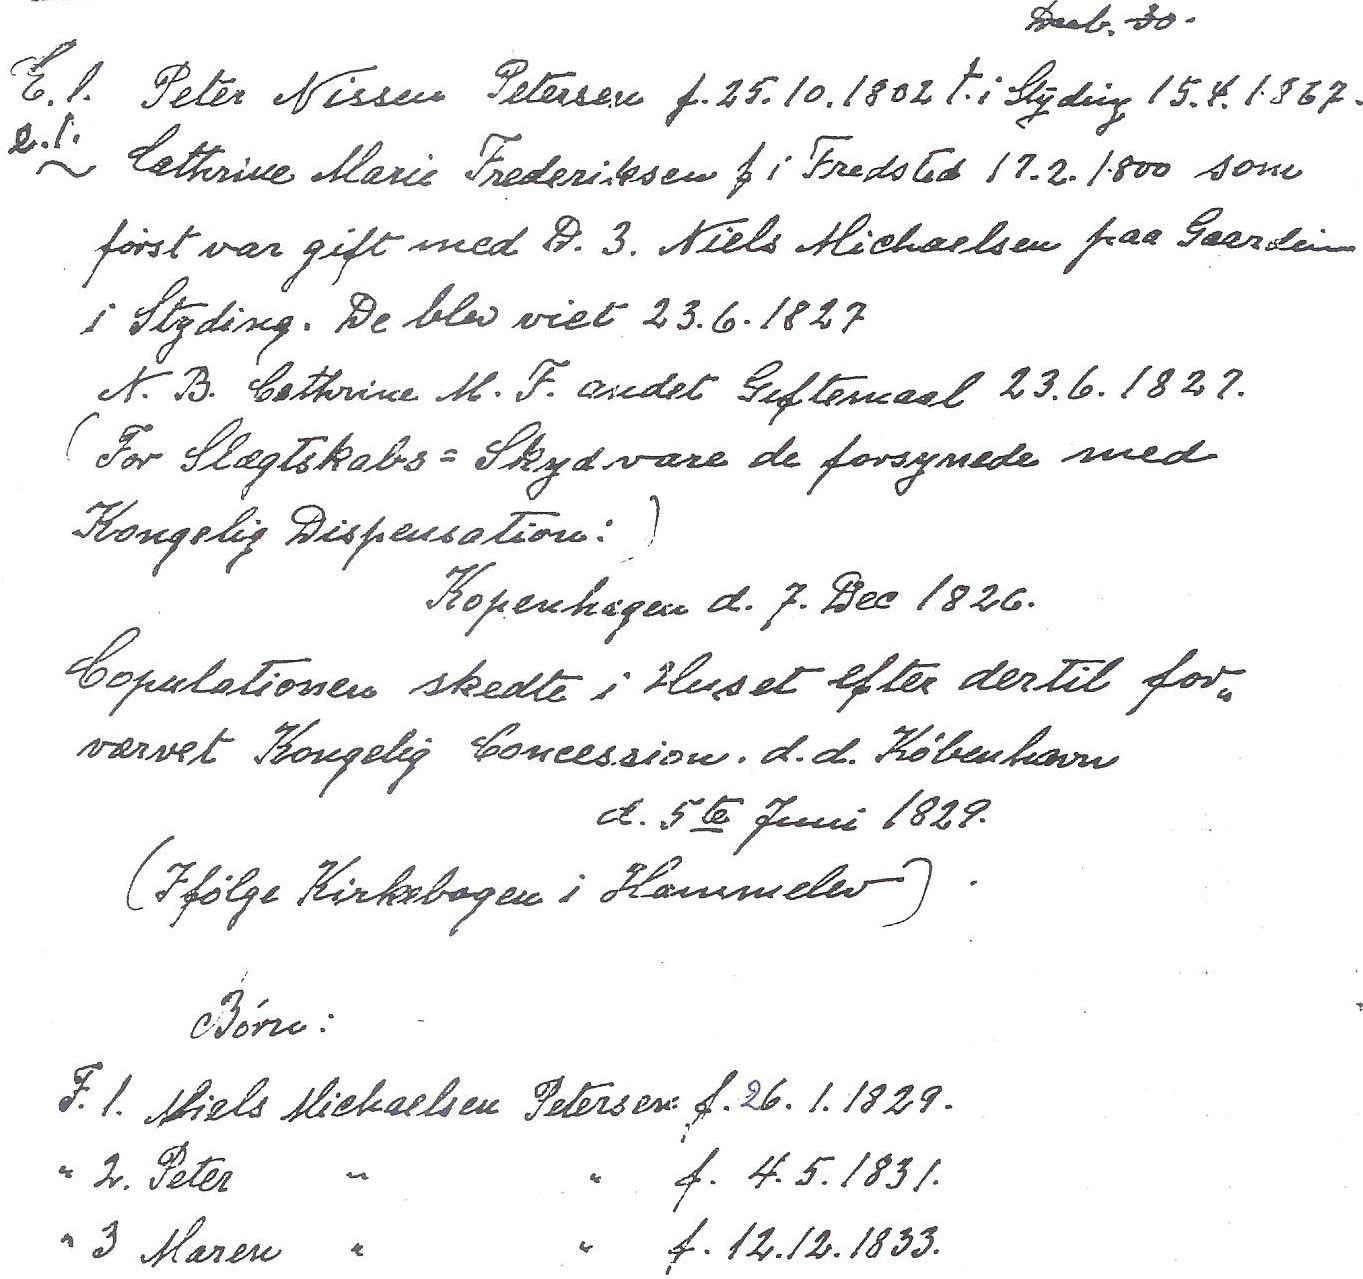 30.
E. 1. Peter Nissen Petersen f. 25.10.1802 †. i Styding 15.4.1867.
2.1. Cathrine Marie Frederiksen f i Fredsted 17.2.1800 som
først var gift med D. 3. Niels Michaelsen paa Gaarden
i Styding. De blev viet 23.6.1827
N. B. Cathrine M. F. andet Giftemaal 23.6.1827.
(For Slægtskabs = Skyd vare de forsynede med
Kongelig Dispensation:)
Kopenhagen d. 7. Dec 1826.
Copulationen skedte i Huset efter dertil for„
værvet Kongelig Concession. d.d. København
d. 5te Juni 1829.
(Ifølge Kirkebogen i Hammelev).
Børn:
F. 1. Niels Michaelsen Petersen f. 26.1.1829.
" 2. Peter " " f. 4.5.1831.
" 3 Maren " " f. 12.12.1833.